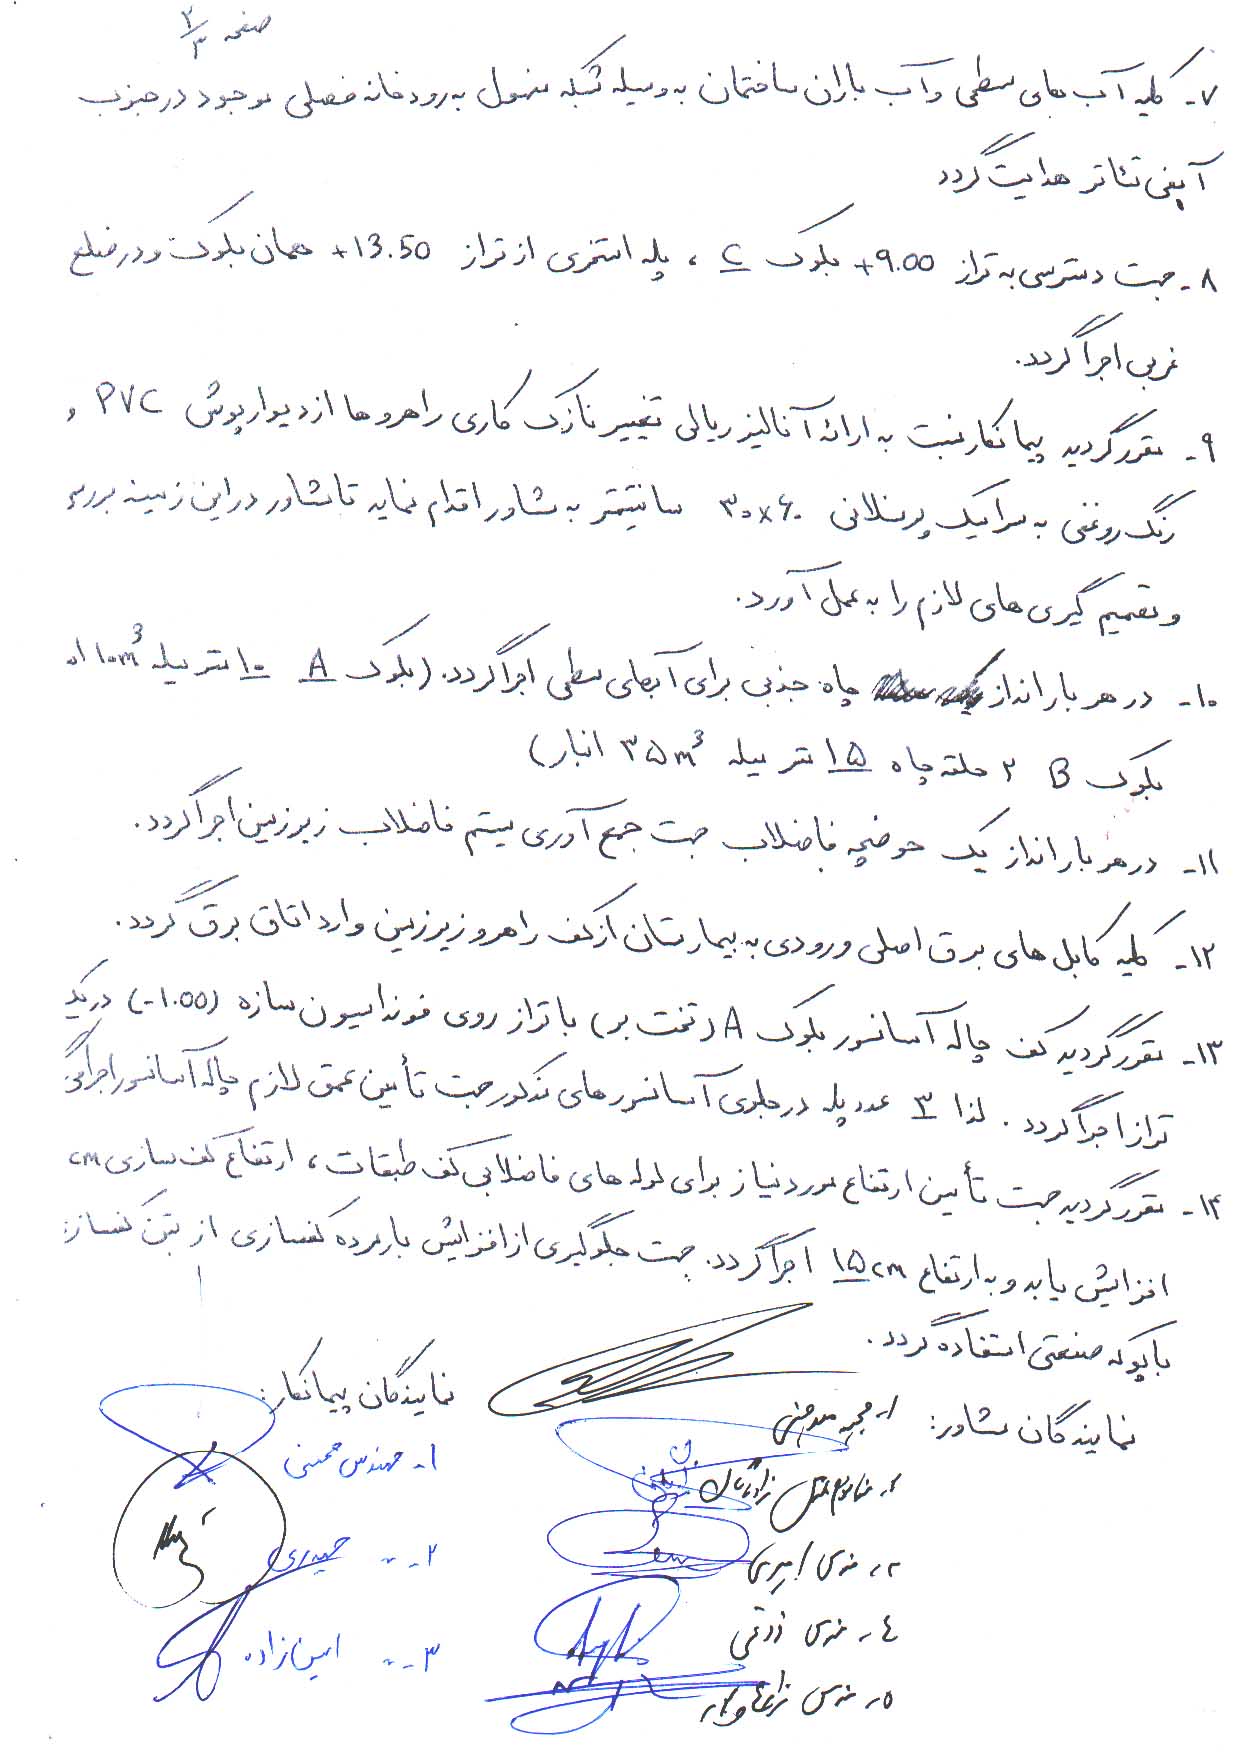 صفحه ۲/۳
۷- کلیه آب های سطحی و آب باران ساختمان به وسیله شبکه منهول به رودخانه فصلی موجود در جنوب
آمفی تئاتر هدایت گردد
۸- جهت دسترسی به تراز +9.00 بلوک C ، پله استخری از تراز +13.50 همان بلوک و در ضلع
غربی اجرا گردد.
۹- مقرر گردید پیمانکار نسبت به ارائه آنالیز ریالی تغییر نازک کاری راهروها از دیوارپوش PVC و
رنگ روغنی به سرامیک پرسلانی ۳۰×۶۰ سانتیمتر به مشاور اقدام نماید تا مشاور در این زمینه بررسی
و تصمیم گیری های لازم را به عمل آورد.
۱۰- در هر بارانداز چاه جذبی برای آبهای سطحی اجرا گردد. (بلوک A ۱۰ متر میله ۱۰m³
بلوک B ۲ حلقه چاه ۱۵ متر میله ۳۵m³ انبار)
۱۱- در هر بارانداز یک حوضچه فاضلاب جهت جمع آوری سیتم فاضلاب زیرزمین اجرا گردد.
۱۲- کلیه کابل های برق اصلی ورودی به بیمارستان از کف راهرو زیرزمین وارد اتاق برق گردد.
۱۳- مقرر گردید کف چاله آسانسور بلوک A (تخت بر) با تراز روی فونداسیون سازه (-1.00) در یک
تراز اجرا گردد. لذا ۳ عدد پله در جلوی آسانسورهای مذکور جهت تأمین عمق لازم چاله آسانسور اجرا
۱۴- مقرر گردید جهت تأمین ارتفاع مورد نیاز برای لوله های فاضلابی کف طبقات، ارتفاع کف سازی cm
افزایش یابد و به ارتفاع ۱۵cm اجرا گردد. جهت جلوگیری از افزایش بار مرده کفسازی از بتن کفسازی
با پوکه صنعتی استفاده گردد.
نمایندگان مشاور:
۲- خانم
۳- مهندس امیری
۴- مهندس
۵- مهندس
نمایندگان پیمانکار:
۱- مهندس معینی
۲- " حیدری
۳- " امین زاده